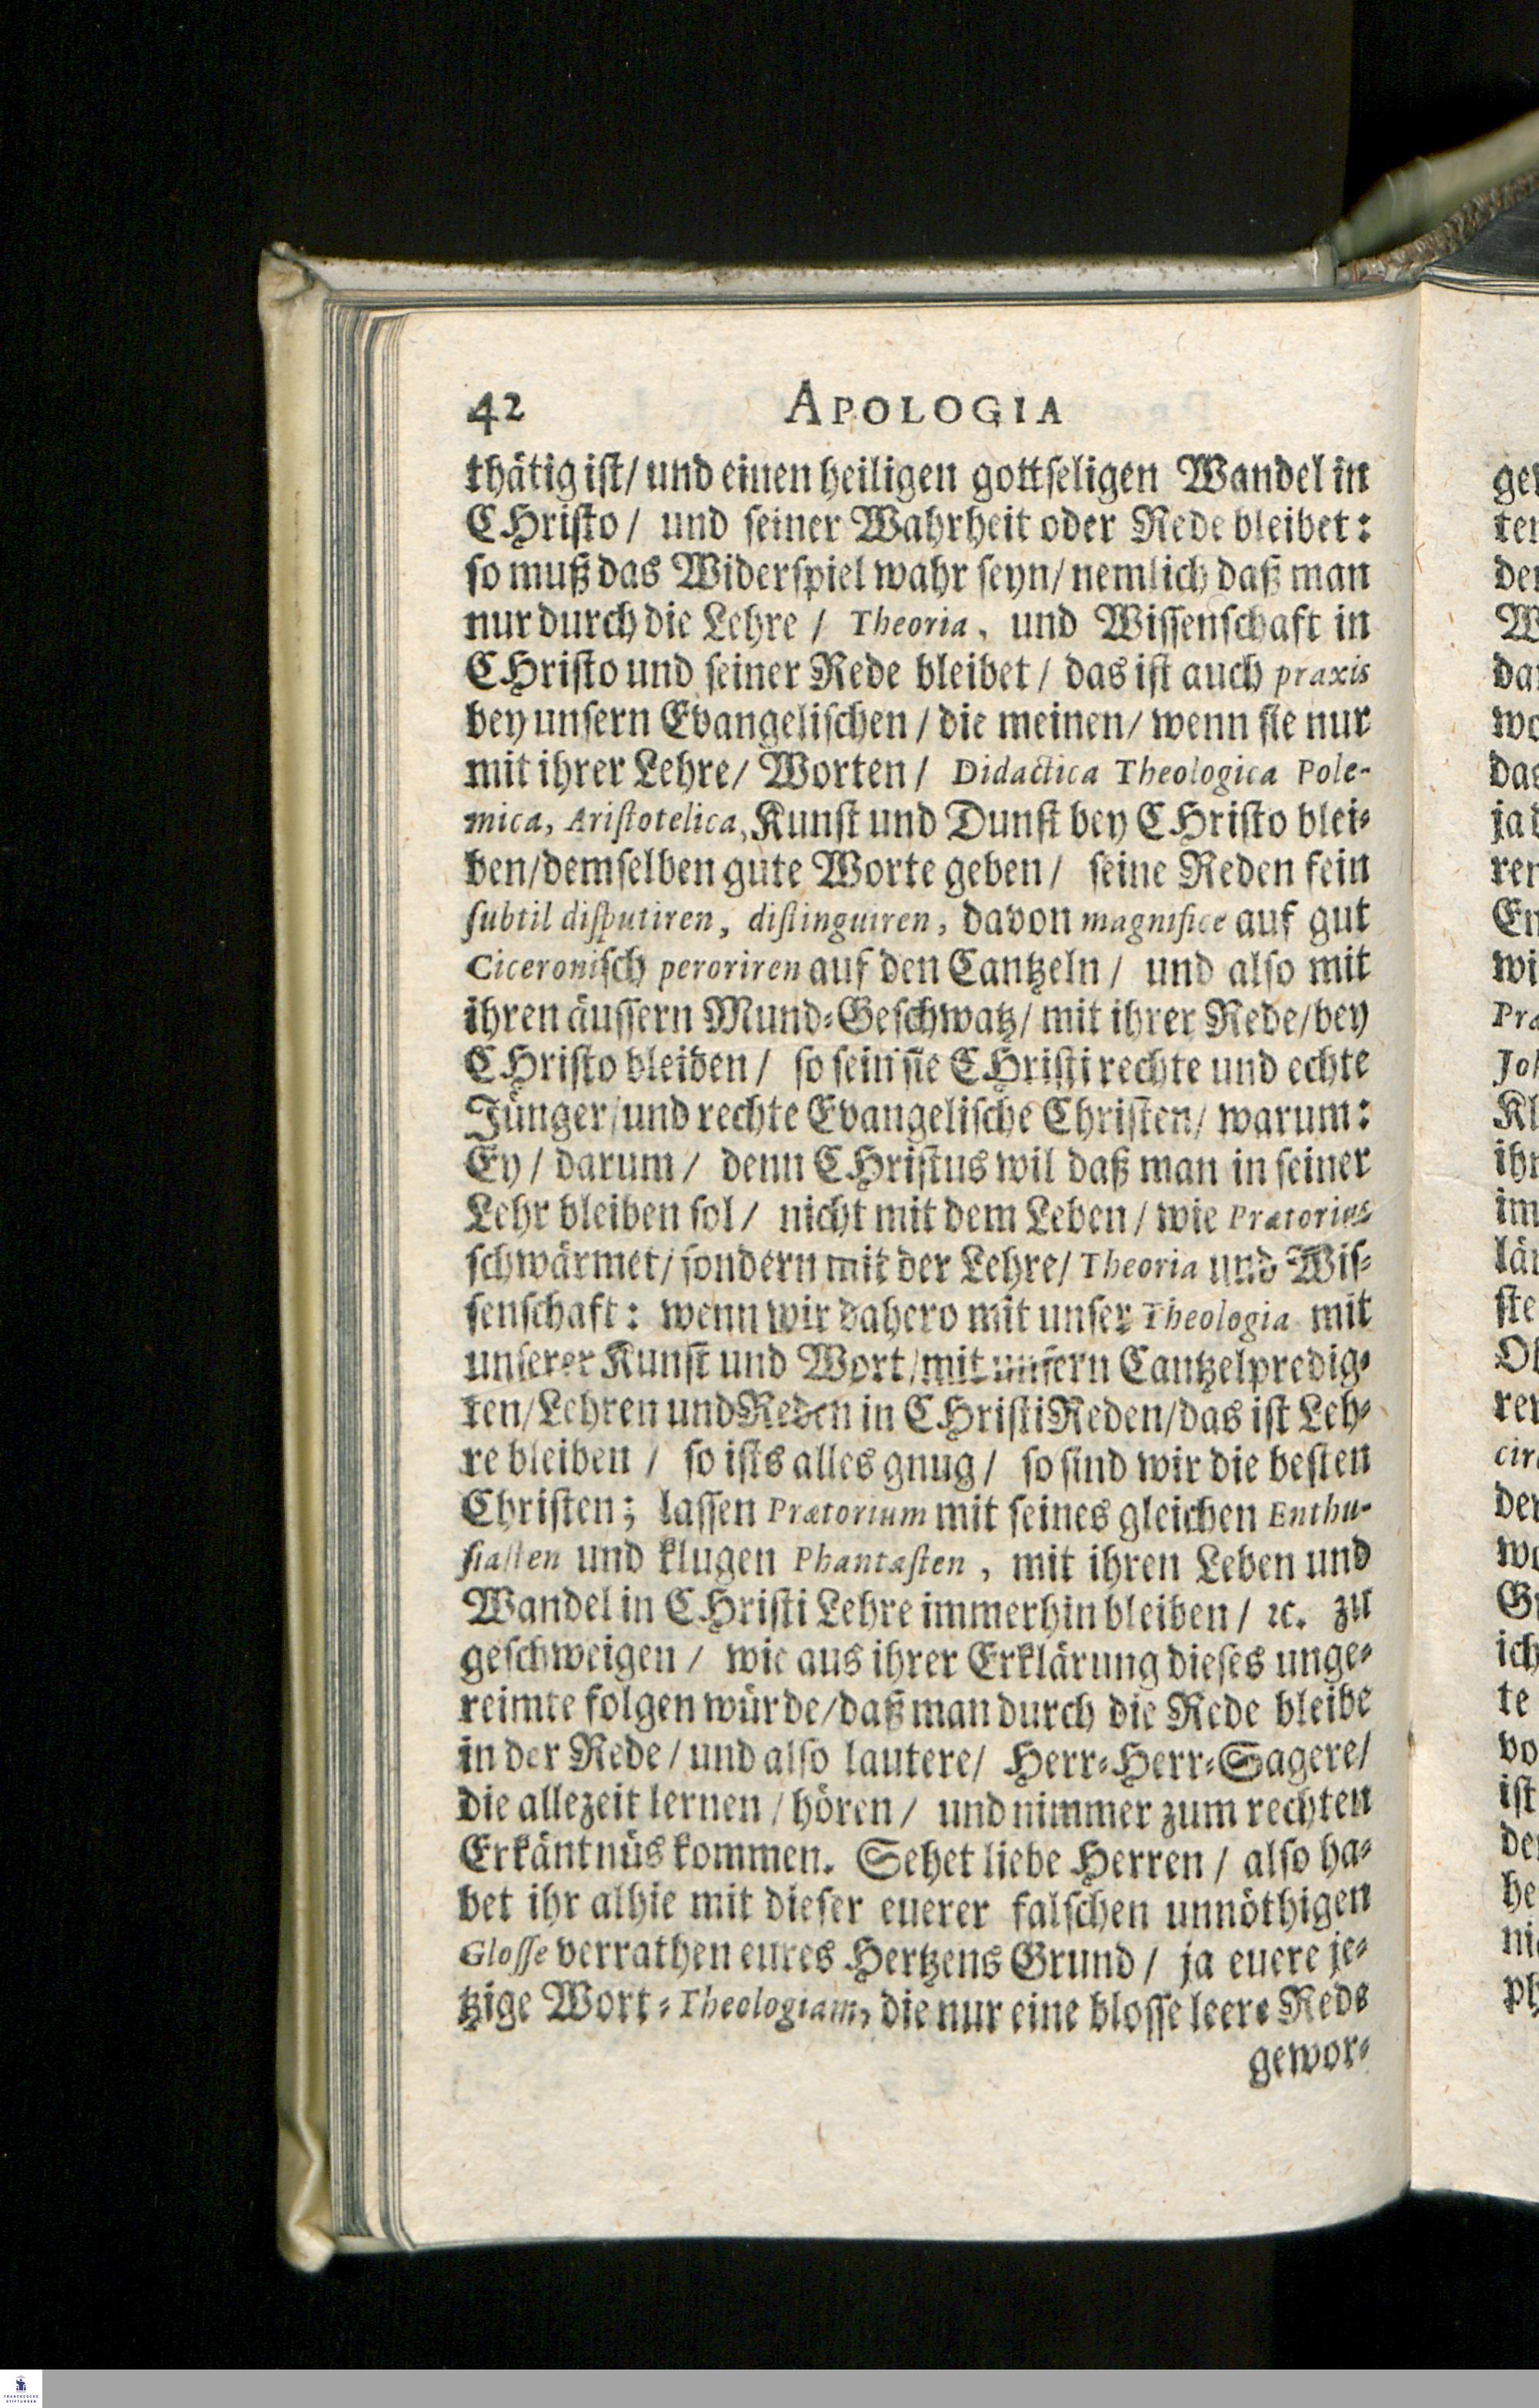 42 APOLOGIA
thätig ist/ und einen heiligen gottseligen Wandel in
CHristo/ und seiner Wahrheit oder Rede bleibet:
so muß das Widerspiel wahr seyn/ nemlich daß man
nur durch die Lehre / Theoria, und Wissenschaft in
CHristo und seiner Rede bleibet / das ist auch praxis
bey unsern Evangelischen / die meinen/ wenn sie nur
mit ihrer Lehre/ Worten / Didactica Theologica Pole-
mica, Aristotelica, Kunst und Dunst bey CHristo blei-
ben/demselben gute Worte geben / seine Reden fein
subtil disputiren, distinguiren, davon magnifice auf gut
Ciceronisch peroriren auf den Cantzeln / und also mit
ihren äussern Mund-Geschwatz/ mit ihrer Rede/bey
CHristo bleiben / so sein sie CHristi rechte und echte
Jünger/und rechte Evangelische Christen/ warum:
Ey / darum / denn CHristus wil daß man in seiner
Lehr bleiben sol / nicht mit dem Leben / wie Prætorius
schwärmet/ sondern mit der Lehre/ Theoria und Wis-
senschaft: wenn wir dahero mit unser Theologia mit
unserer Kunst und Wort/mit unsern Cantzelpredig-
ten/Lehren und Reden in CHristi Reden/das ist Leh-
re bleiben / so ists alles gnug / so sind wir die besten
Christen; lassen Prætorium mit seines gleichen Enthu-
siasten und klugen Phantasten, mit ihren Leben und
Wandel in CHristi Lehre immerhin bleiben / ꝛc. zu
geschweigen / wie aus ihrer Erklärung dieses unge-
reimte folgen würde/daß man durch die Rede bleibe
in der Rede / und also lautere/ Herr-Herr-Sagere/
die allezeit lernen / hören / und nimmer zum rechten
Erkäntnüs kommen. Sehet liebe Herren / also ha-
bet ihr alhie mit dieser euerer falschen unnöthigen
Glosse verrathen eures Hertzens Grund / ja euere je-
tzige Wort-Theologiam, die nur eine blosse leere Rede
gewor-